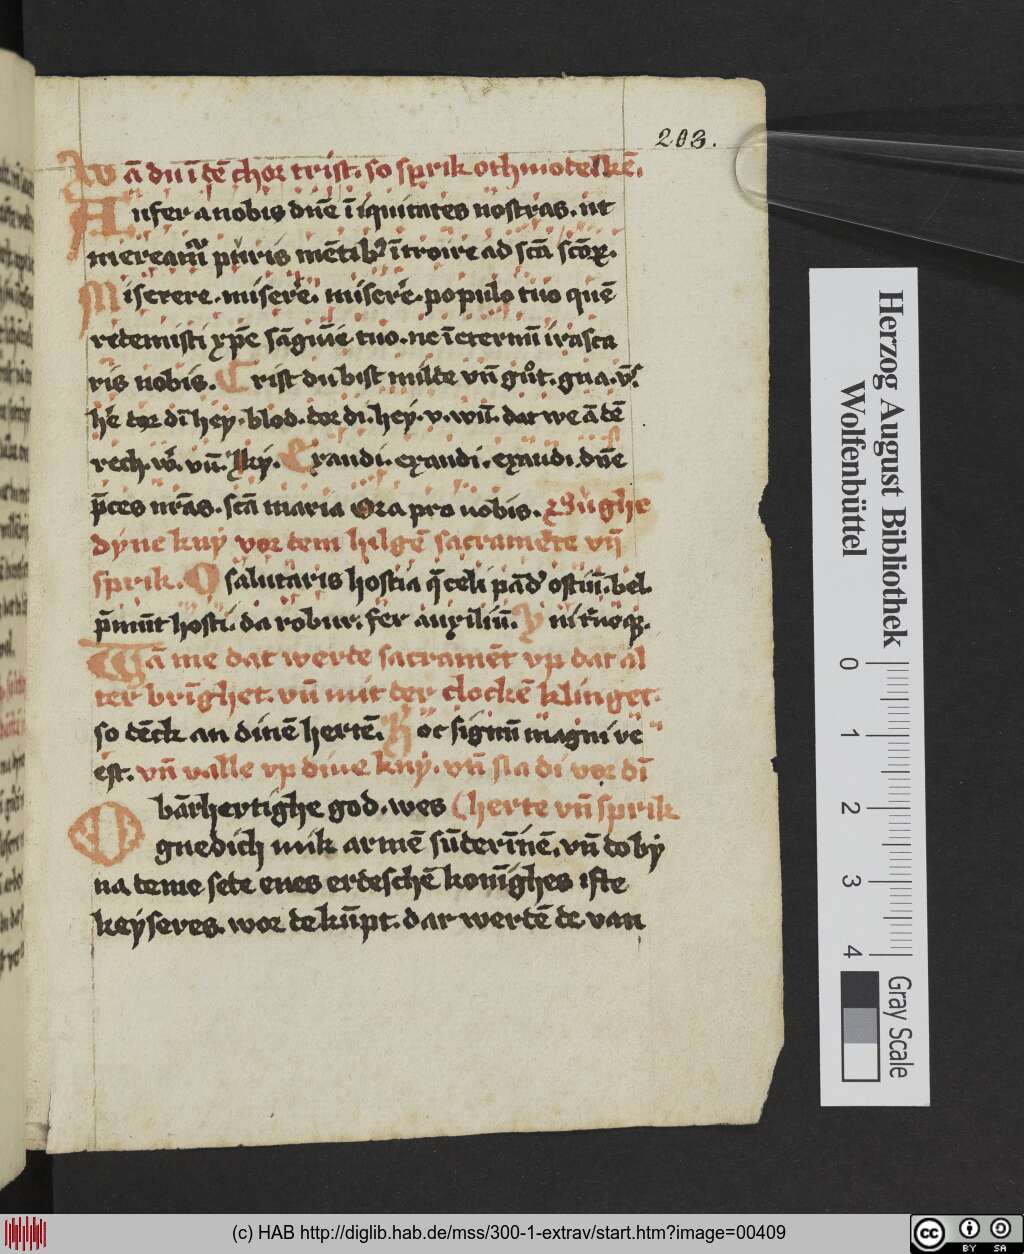 203.
ā du ī dē chor trist. so sprik othmodelkē.
Aufer a nobis dn̄e īiquitates nostras. ut
mereamur puris mētibꝰ ītroire ad scā scōꝝ.
Miserere. miserēe. miserēe. populo tuo quē
redemisti xp̄e sāgwīe tuo. ne īeternū irasca
ris nobis. Crist du bist milde vn̄ gůt.
dor dī hey. blod. dor di. hey. v. wū. dat we ā dē
rech. vn̄. Exaudi. exaudi. exaudi. dn̄e
p̄ces nr̄as. scā maria Ora pro nobis. Bůghe
dyne kny vor dem hilgē sacramēte vn̄
sprik. O salutaris hostia q̄ celi pādꝰ ostiū. bel.
p̄mūt hosti. da robur. fer auxiliū.
Wā me dat werde sacramēt vp dat al
ter brīghet. vn̄ mit der clockē klinget.
so dēck an dinē hertē. Hoc signū magni re
est. vn̄ valle vp dine kny. vn̄ sla di vor dī
O bārhertighe god. wes herte vn̄ sprik
gnedich mik armē sūderīnē. vn̄ do by
na deme sede enes erdeschē konīghes ifte
keyseres. wor de kūpt. dar werdē de van
Herzog August Bibliothek
Wolfenbüttel
0 1 2 3 4
Gray Scale
(c) HAB http://diglib.hab.de/mss/300-1-extrav/start.htm?image=00409
cc BY SA